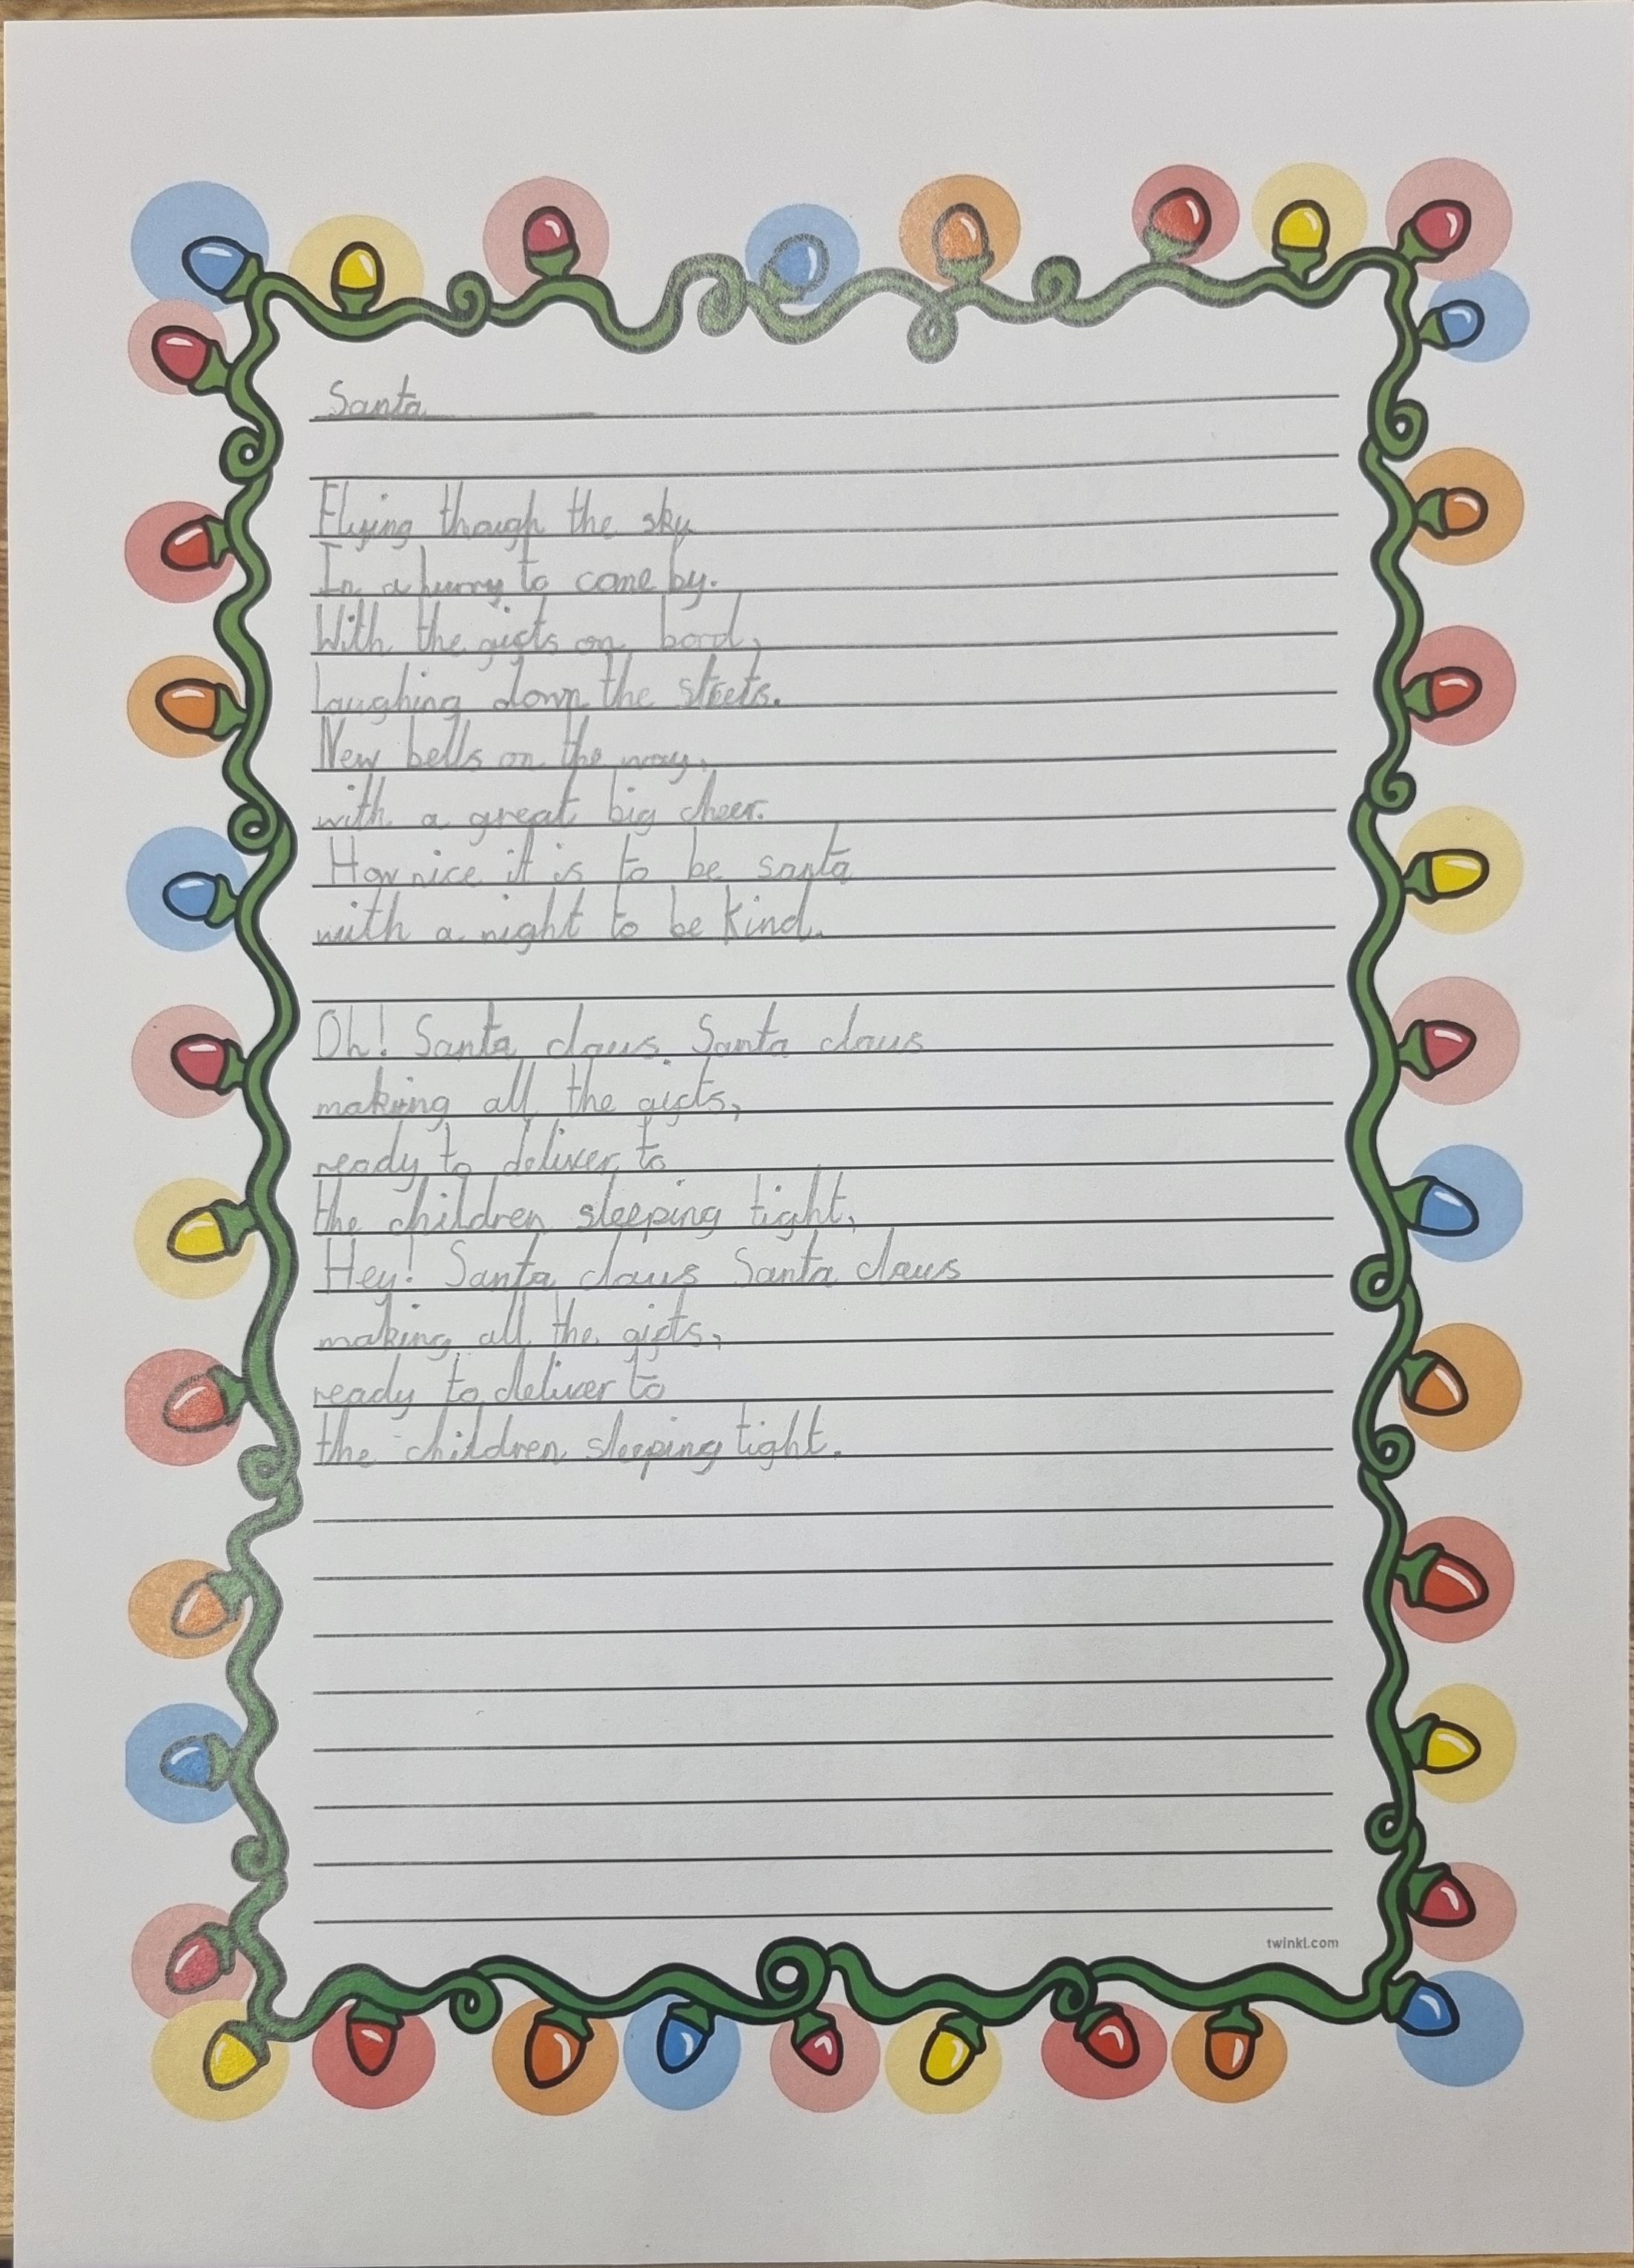 Santa
Flying though the sky
In a hurry to come by.
With the gifts on bord,
laughing down the streets.
New bells on the way,
with a great big cheer.
How nice it is to be santa
with a night to be kind.
Oh! Santa claus, Santa claus
making all the gifts,
ready to deliver to
the children sleeping tight,
Hey! Santa claus Santa claus
making all the gifts,
ready to deliver to
the children sleeping tight.
twinkl.com